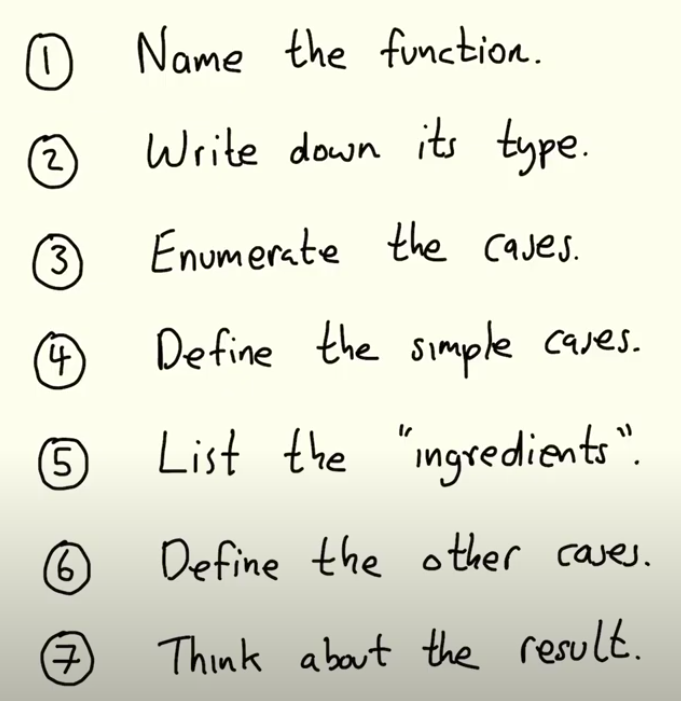 1 Name the function.
2 Write down its type.
3 Enumerate the cases.
4 Define the simple cases.
5 List the "ingredients".
6 Define the other cases.
7 Think about the result.